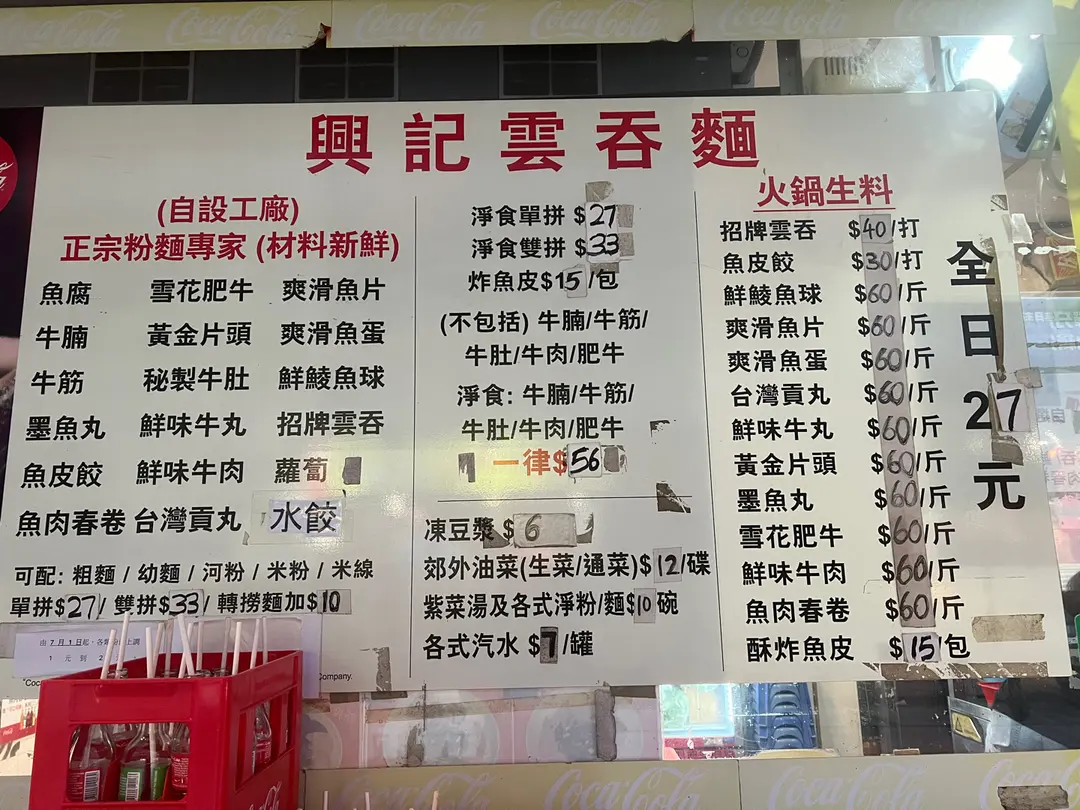 Coca-Cola Coca-Cola Coca-Cola
興記雲吞麵
(自設工廠)
正宗粉麵專家 (材料新鮮)
魚腐 雪花肥牛 爽滑魚片
牛腩 黃金片頭 爽滑魚蛋
牛筋 秘製牛肚 鮮鯪魚球
墨魚丸 鮮味牛丸 招牌雲吞
魚皮餃 鮮味牛肉 蘿蔔
魚肉春卷 台灣貢丸 水餃
可配: 粗麵 / 幼麵 / 河粉 / 米粉 / 米線
單拼$27/ 雙拼$33/ 轉撈麵加$10
由 7 月 1 日起、各類
上調
1 元到 2
"Coc
Company.
淨食單拼 $27
淨食雙拼 $33
炸魚皮$15/包
(不包括) 牛腩/牛筋/
牛肚/牛肉/肥牛
淨食: 牛腩/牛筋/
牛肚/牛肉/肥牛
一律$56
凍豆漿 $6
郊外油菜(生菜/通菜)$12/碟
紫菜湯及各式淨粉/麵$10碗
各式汽水 $7/罐
火鍋生料
招牌雲吞 $40/打
魚皮餃 $30/打
鮮鯪魚球 $60/斤
爽滑魚片 $60/斤
爽滑魚蛋 $60/斤
台灣貢丸 $60/斤
鮮味牛丸 $60/斤
黃金片頭 $60/斤
墨魚丸 $60/斤
雪花肥牛 $60/斤
鮮味牛肉 $60/斤
魚肉春卷 $60/斤
酥炸魚皮 $15/包
全日27元
Coca-Cola Coca-Cola Coca-Cola